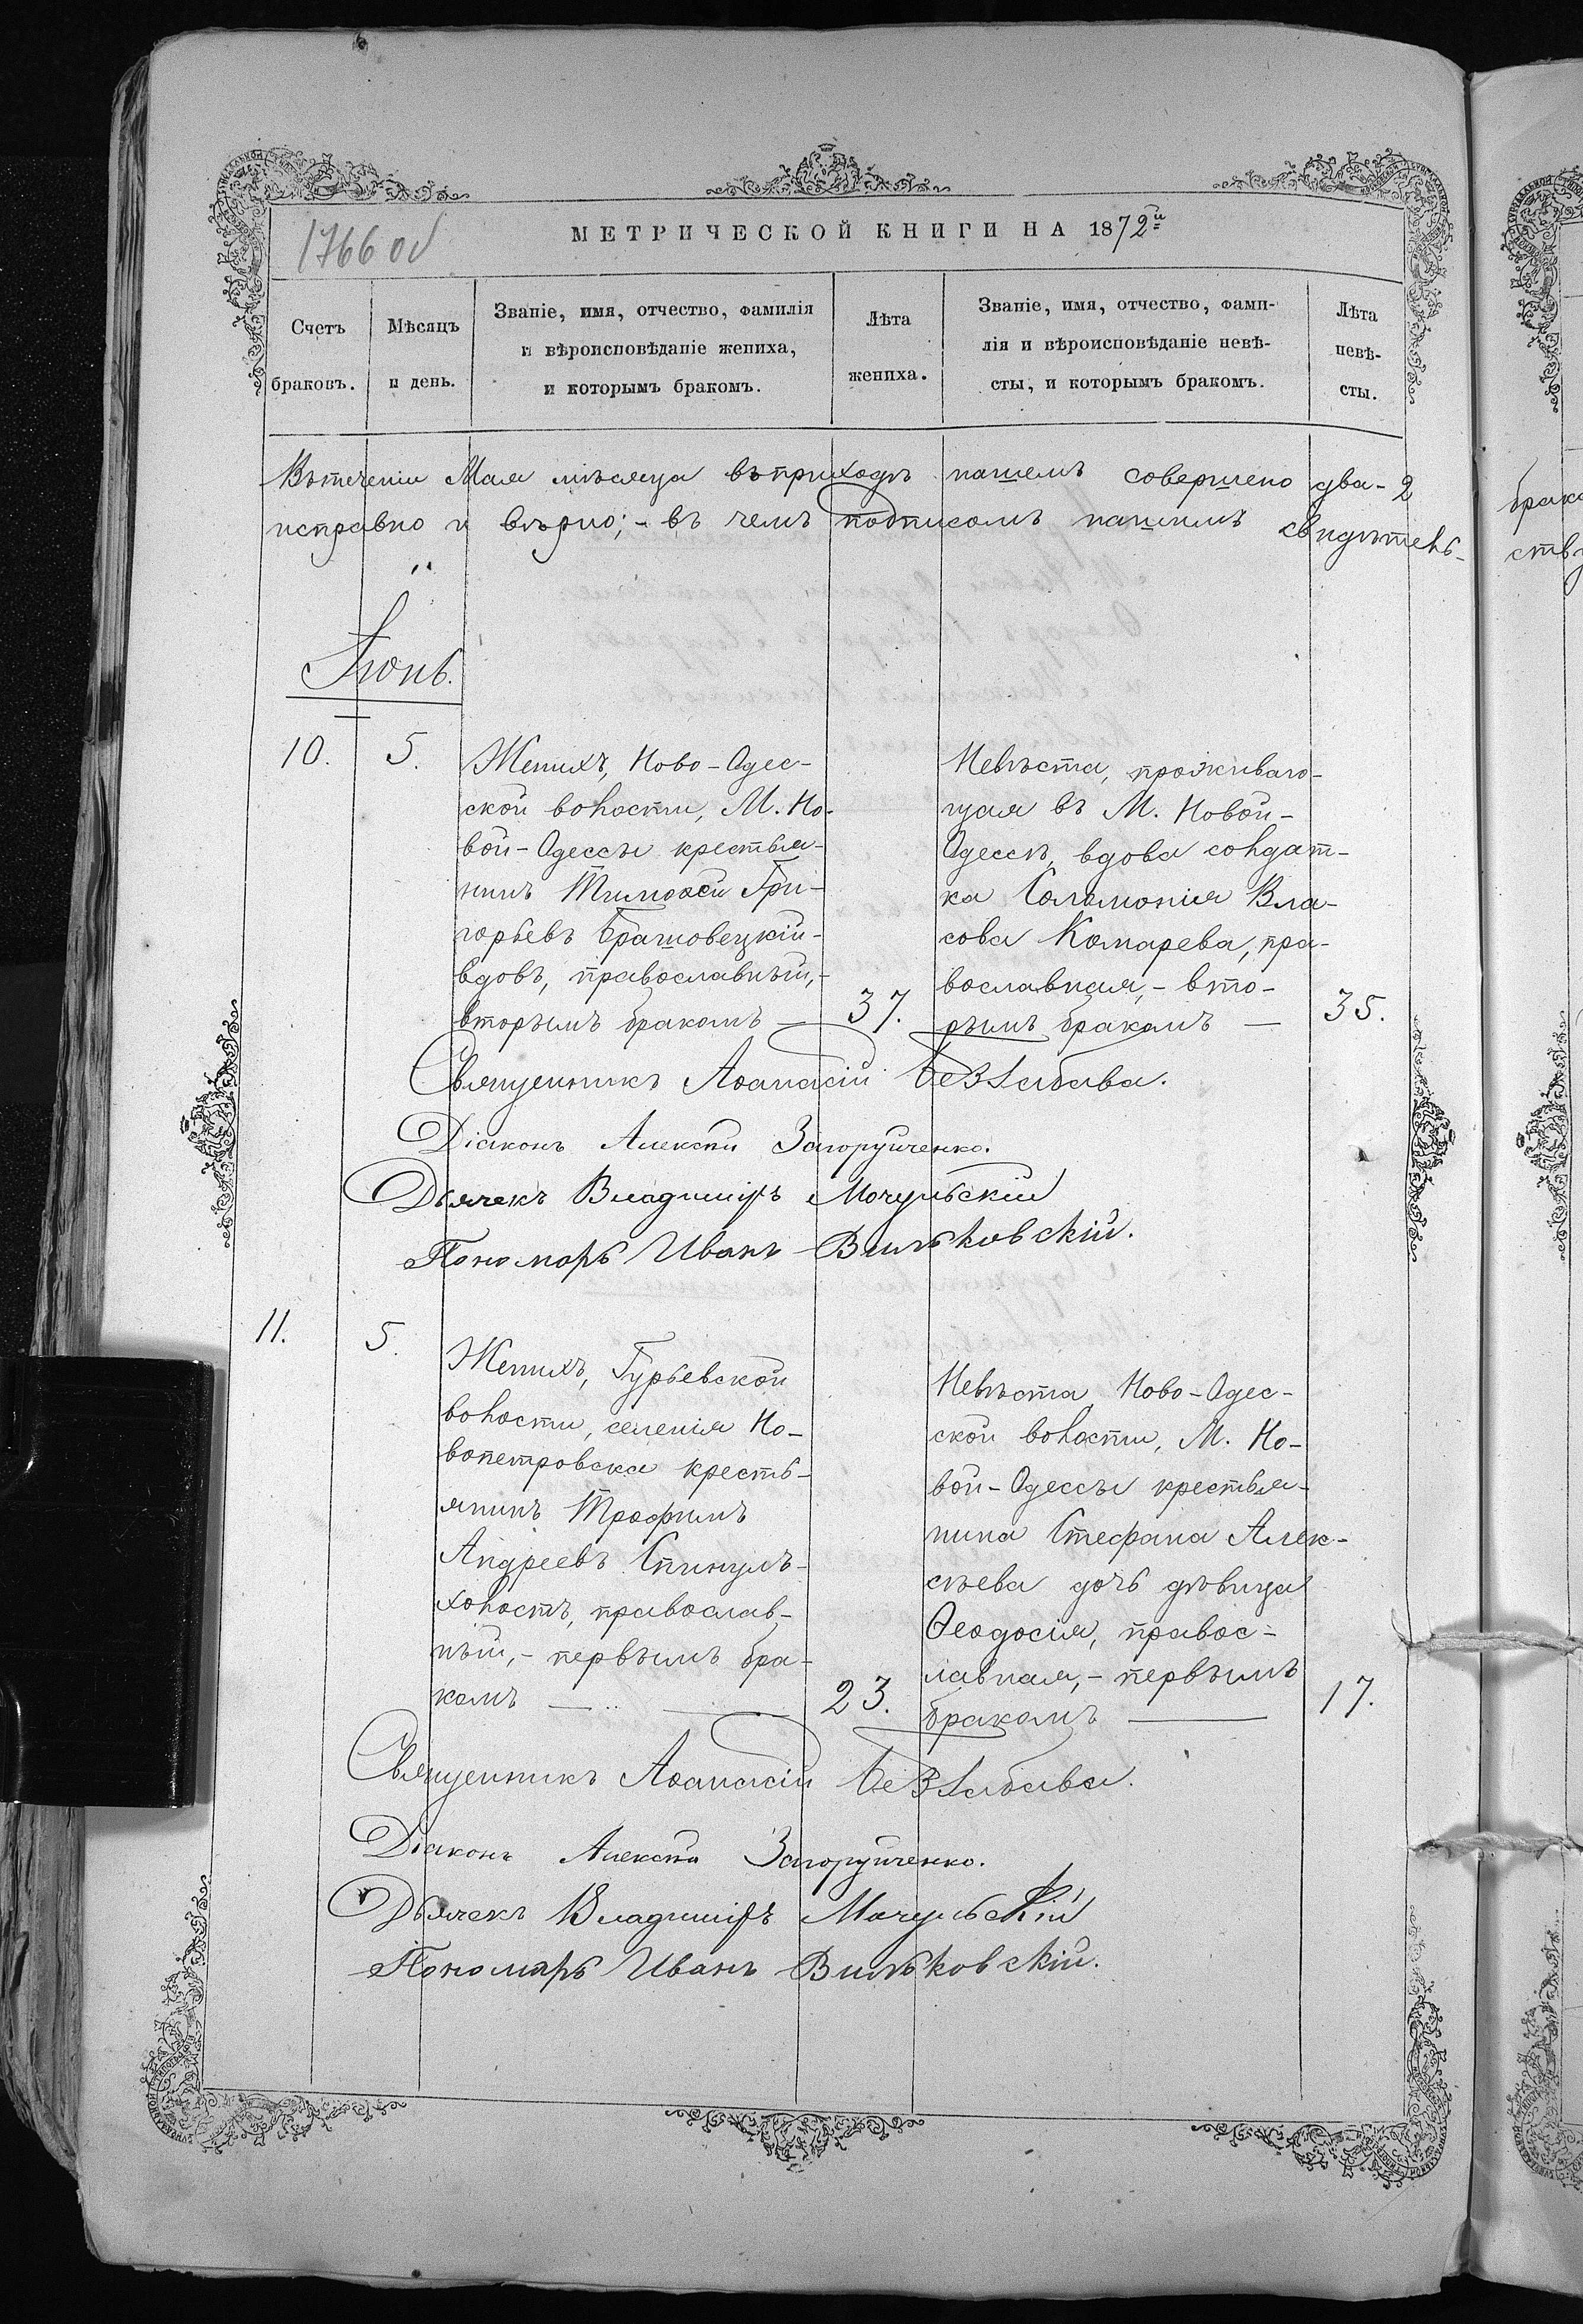 1766 об
МЕТРИЧЕСКОЙ КНИГИ НА 1872й
Счетъ браковъ.
Мѣсяцъ и день.
Званіе, имя, отчество, фамилія
и вѣроисповѣданіе жениха,
и которымъ бракомъ.
Лѣта жениха.
Званіе, имя, отчество, фами-
лія и вѣроисповѣданіе невѣ-
сты, и которымъ бракомъ.
Лѣта невѣ-
сты.
Втеченіи Мая мѣсяца въ приходѣ нашемъ совершено два - 2
исправно и вѣрно; - въ чемъ подписомъ нашимъ свидѣтель-
Іюнь.
10.
5.
Женихъ, Ново-Одес-
ской волости, М. Но-
вой-Одессы крестья-
нинъ Тимоѳей Гри-
горьевъ Брашовецкій -
вдовъ, православный, -
вторымъ бракомъ —
37.
Невѣста, проживаю-
щая въ М. Новой-
Одессѣ, вдова солдат-
ка Соломонія Вла-
сова Комарева, пра-
вославная, - вто-
рымъ бракомъ —
35.
Священникъ Аѳанасій Беззабава.
Діаконъ Алексѣй Загоруйченко.
Дьячекъ Владиміръ Мочульскій
Пономарь Иванъ Вильковскій.
11.
5.
Женихъ, Гурьевской
волости, селенія Но-
вопетровска кресть-
янинъ Трофимъ
Андреевъ Спинулъ -
холостъ, православ-
ный, - первымъ бра-
комъ —
23.
Невѣста Ново-Одес-
ской волости, М. Но-
вой-Одессы крестья-
нина Стефана Алек-
сѣева дочь дѣвица
Ѳеодосія, правос-
лавная, - первымъ
бракомъ —
17.
Священникъ Аѳанасій Беззабава.
Діаконъ Алексѣй Загоруйченко.
Дьячекъ Владиміръ Мочульскій
Пономарь Иванъ Вильковскій.